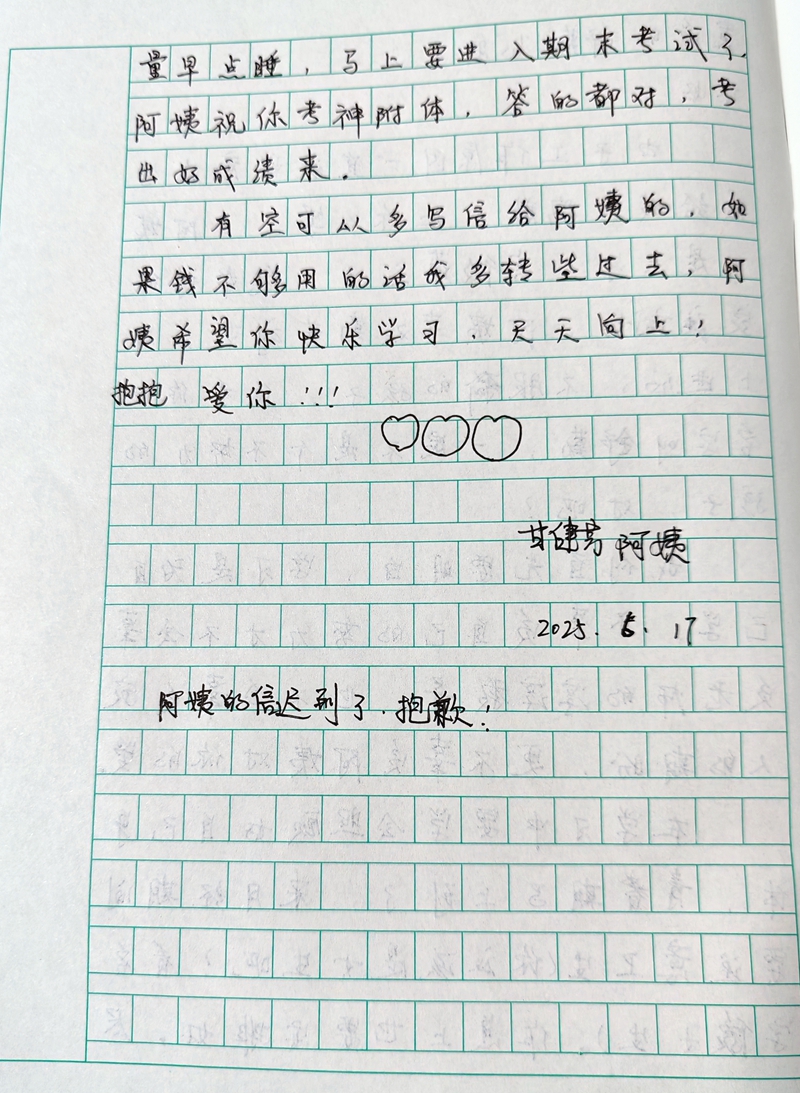 量早点睡，马上要进入期末考试了，
阿姨祝你考神附体，答的都对，考
出好成绩来。
有空可以多写信给阿姨的，如
果钱不够用的话我多转些过去，阿
姨希望你快乐学习，天天向上！
抱抱 爱你！！！
阿姨
2025.6.17
阿姨的信迟到了，抱歉！